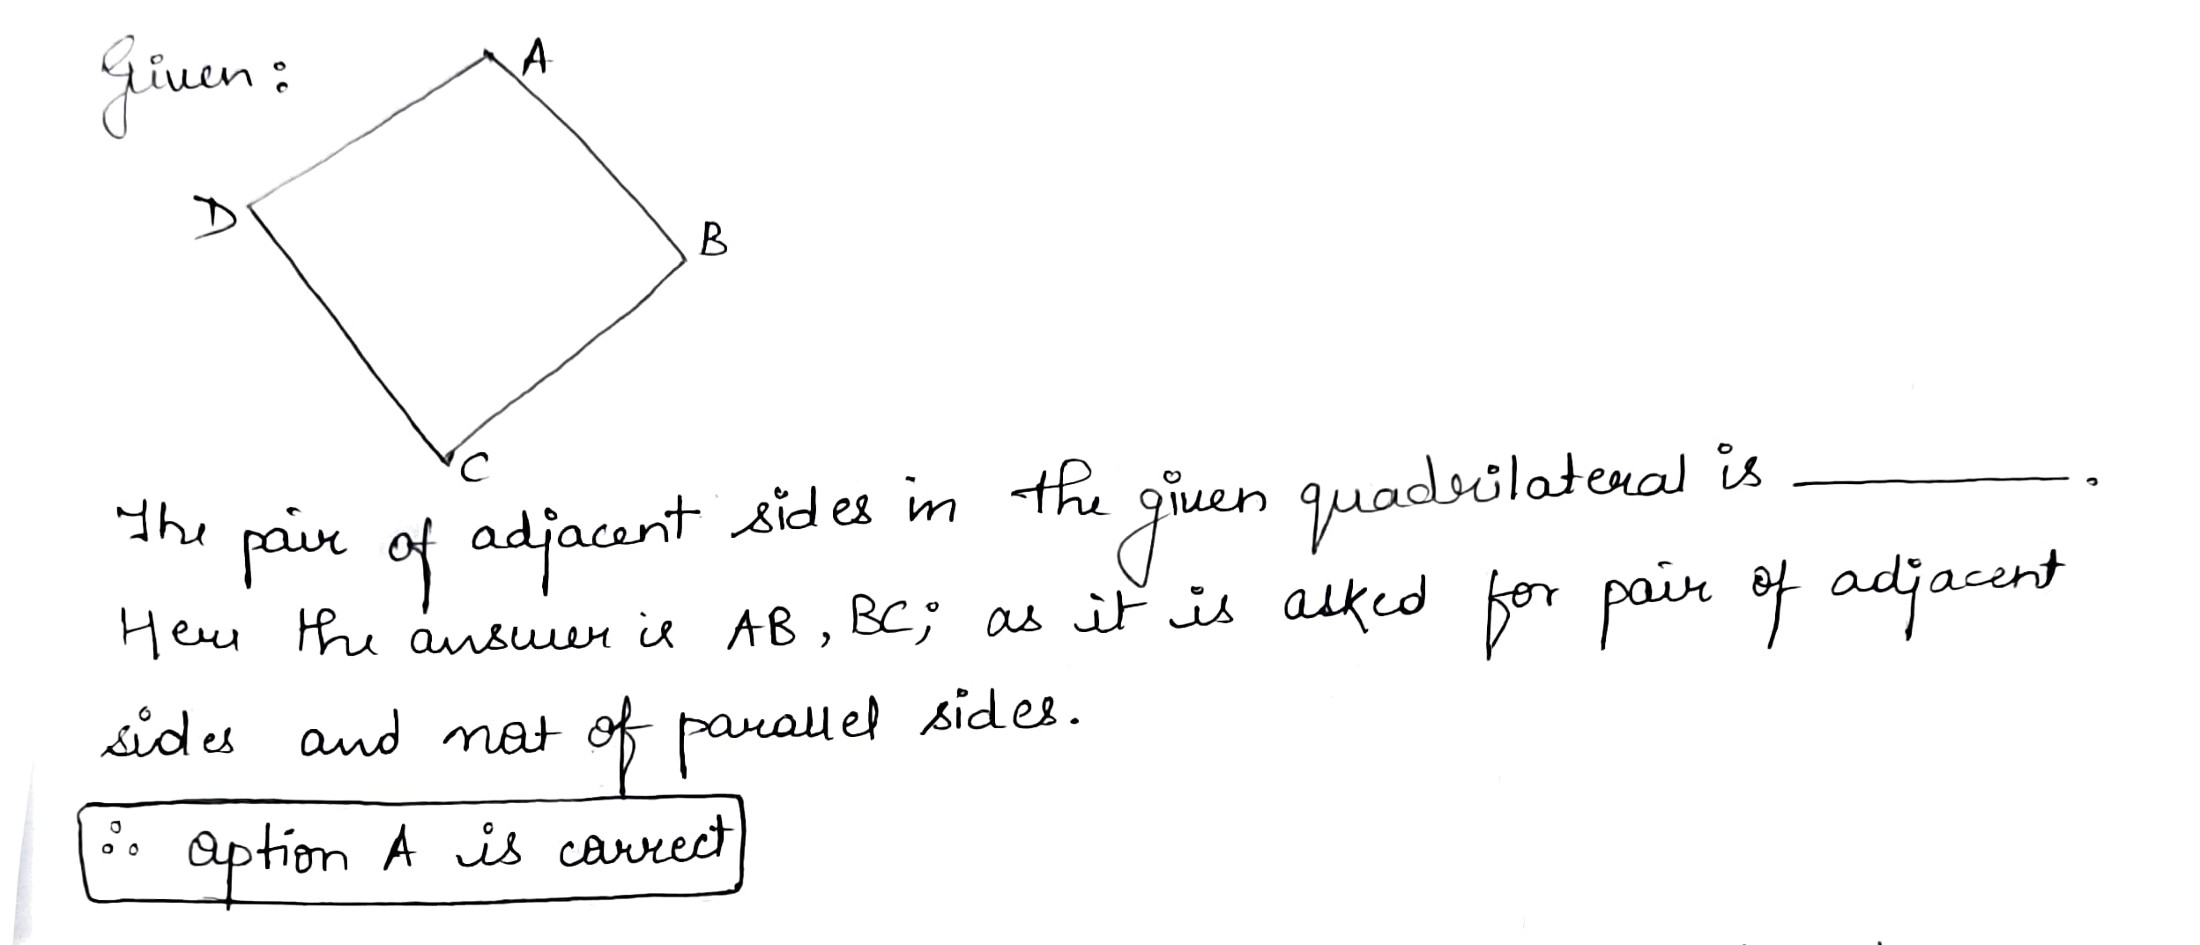 Given :
A
D
B
C
The pair of adjacent sides in the given quadrilateral is ______.
Here the answer is AB, BC; as it is asked for pair of adjacent
sides and not of parallel sides.
∴ option A is correct